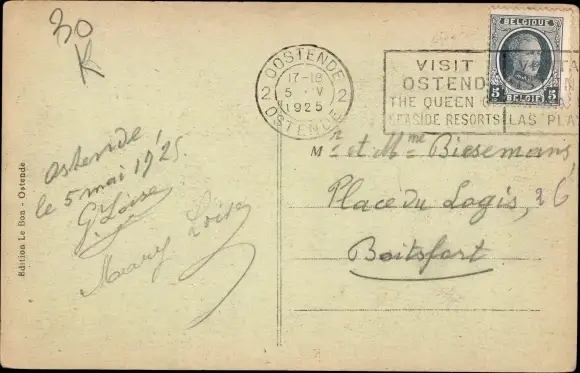 30
K
BELGIQUE
5 5
BELGIË
OOSTENDE
17-18
2 5 · V 2
1925
OSTENDE
VISIT
OSTEND
THE QUEEN OF
SEASIDE RESORTS
LAS PLA
Ostende,
le 5 mai 1925
G. Loise
Mary Loise
Mr et Mme Biesemans,
Place du Logis, 26
Boitsfort
Edition Le Bon - Ostende